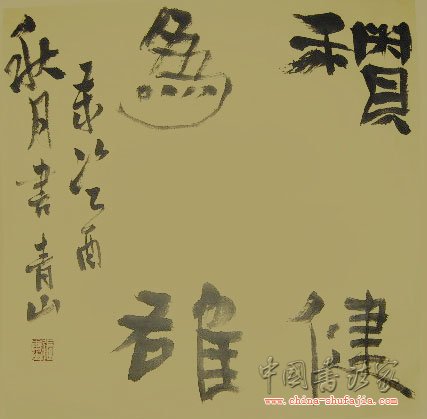 積健
為雄
歲次乙酉
秋月書青山
中國書法家
www.china-shufajia.com